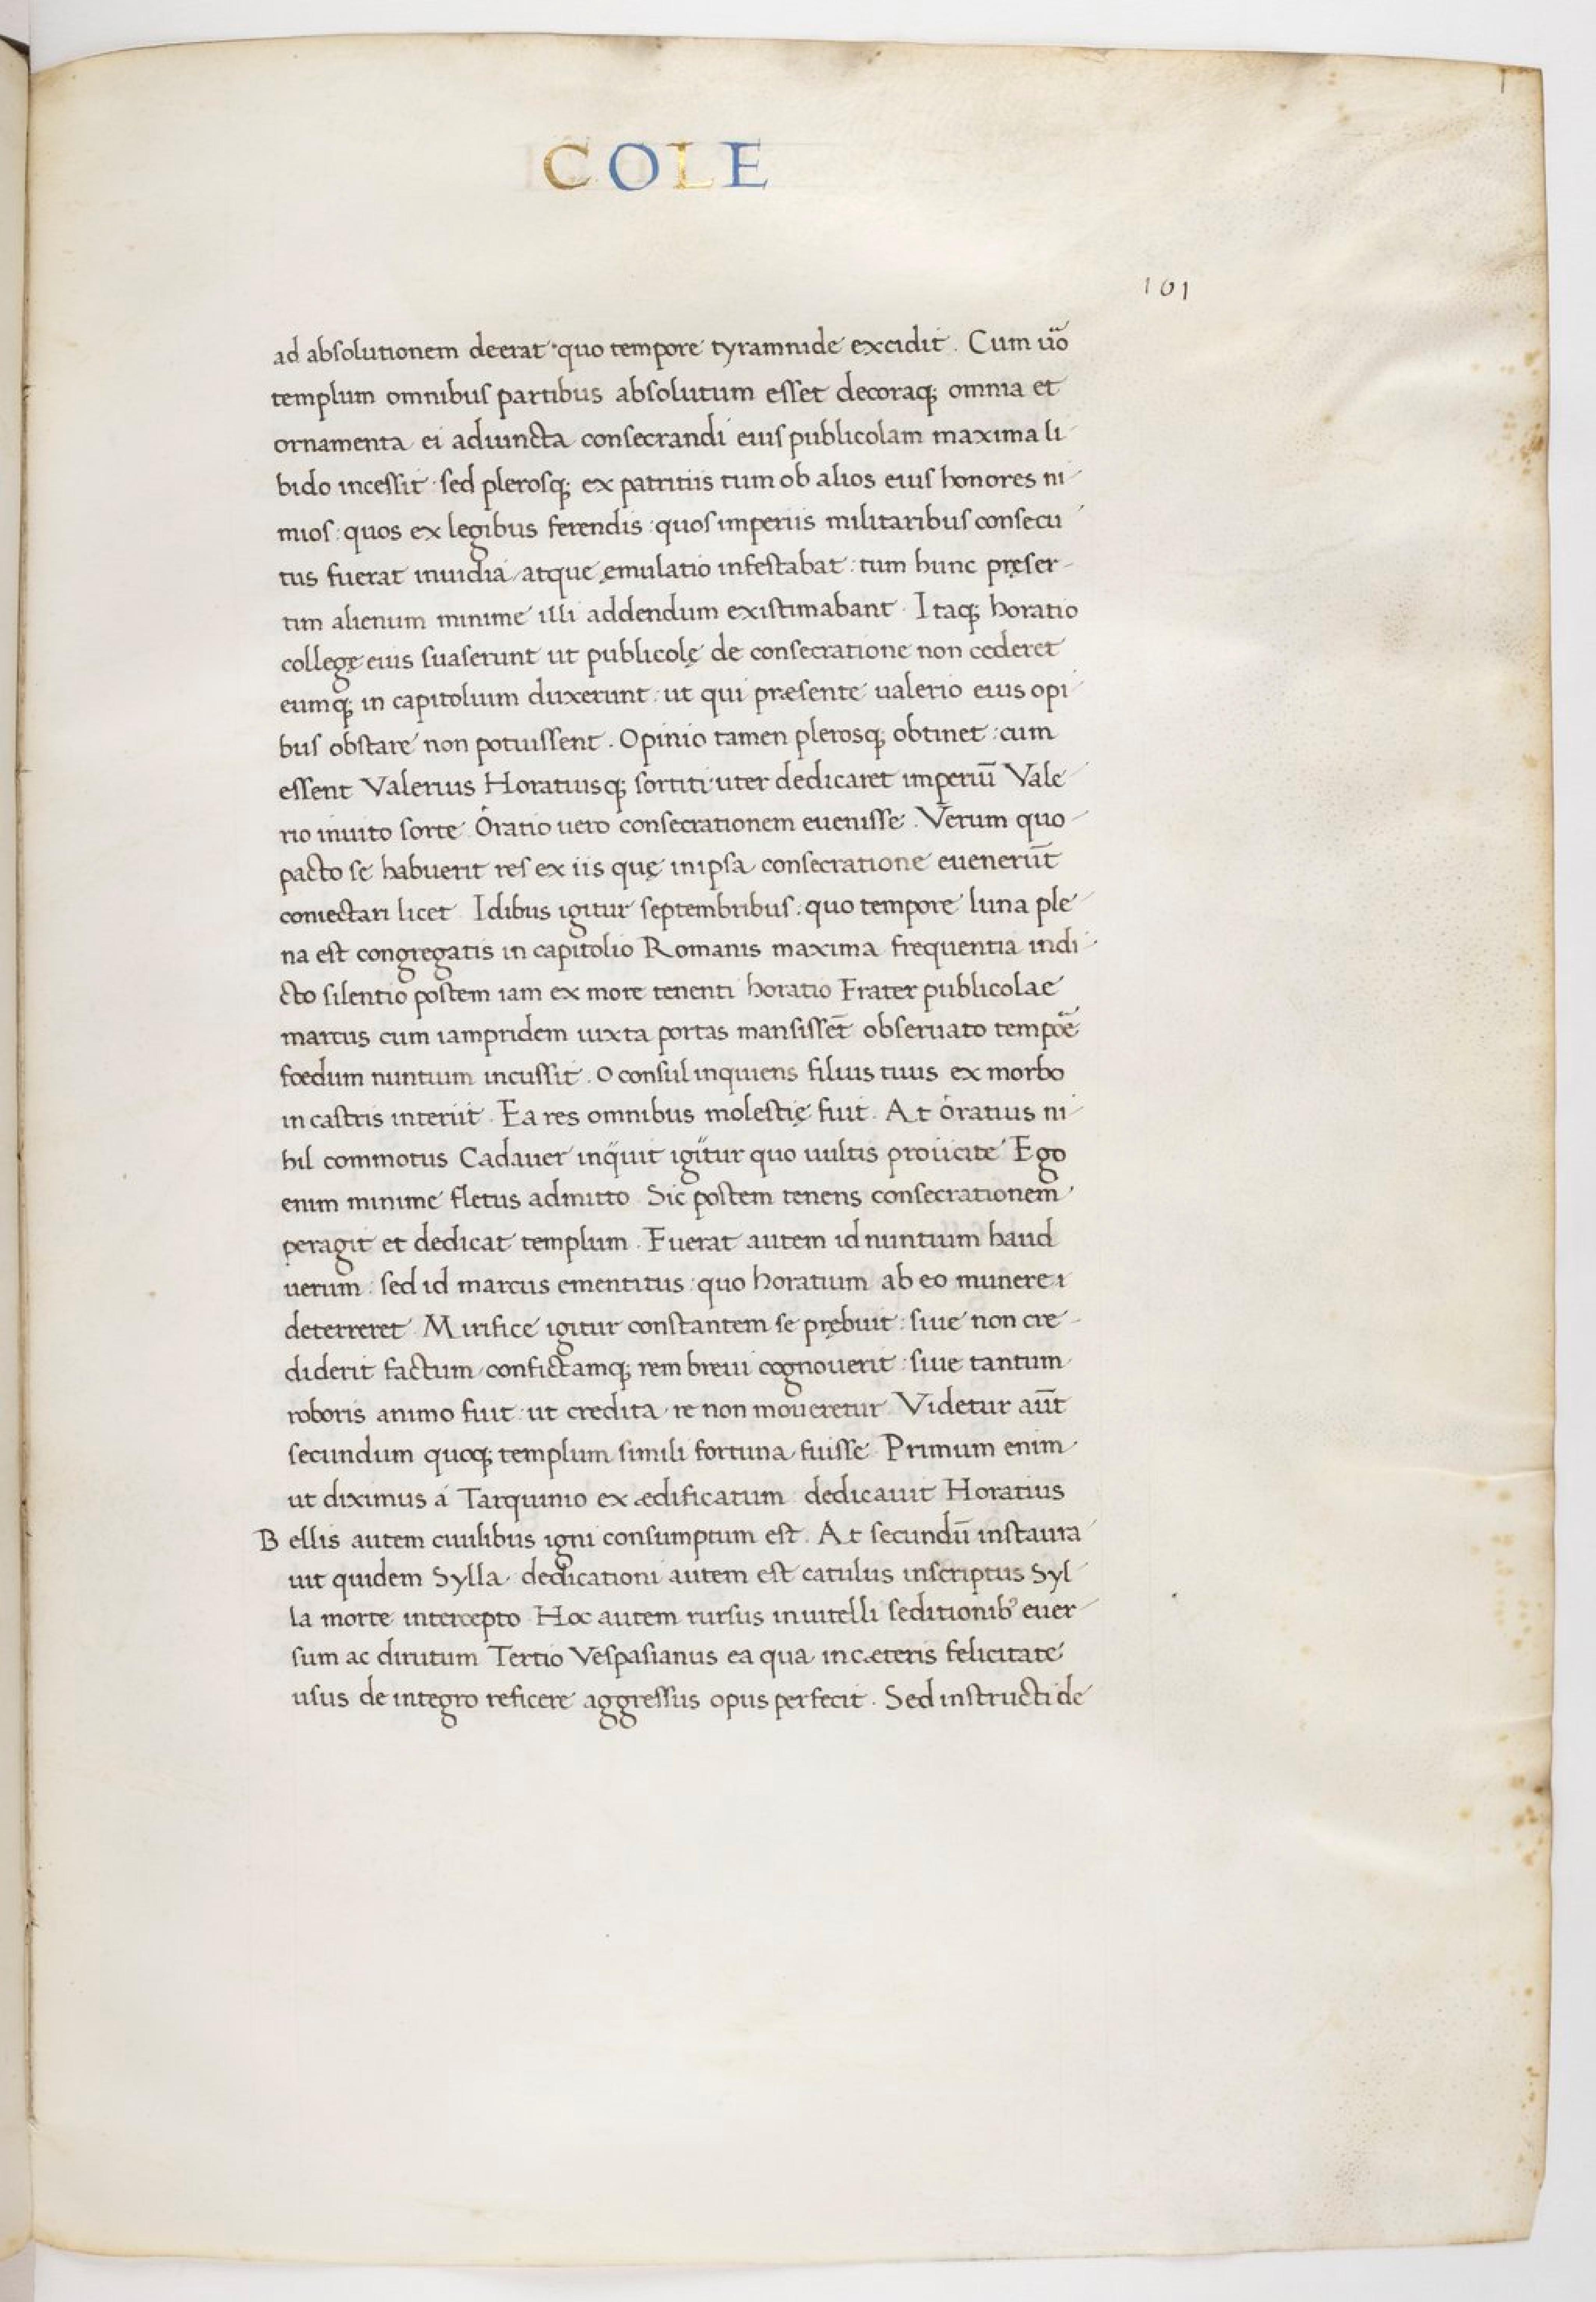 COLE
101
ad absolutionem deerat· quo tempore tyramnide excidit. Cum uo̅
templum omnibus partibus absolutum esset decoraq; omnia et
ornamenta ei adiuncta consecrandi eius publicolam maxima li-
bido incessit· sed plerosq; ex patritiis tum ob alios eius honores ni-
mios: quos ex legibus ferendis: quos imperiis militaribus consecu-
tus fuerat inuidia atque ęmulatio infestabat: tum hunc pręser-
tim alienum minime illi addendum existimabant· Itaq; horatio
collegę eius suaserunt ut publicolę de consecratione non cederet
eumq; in capitolium duxerunt: ut qui præsente ualerio eius opi-
bus obstare non potuissent. Opinio tamen plerosq; obtinet: cum
essent Valerius Horatiusq; sortiti· uter dedicaret imperiū Vale-
rio inuito sorte Oratio uero consecrationem euenisse. Verum quo-
pacto se habuerit res ex iis quę in ipsa consecratione euenerūt
coniectari licet Idibus igitur septembribus: quo tempore luna ple-
na est congregatis in capitolio Romanis maxima frequentia indi-
cto silentio postem iam ex more tenenti horatio Frater publicolae
marcus cum iampridem iuxta portas mansisset obseruato tempoe̅
foedum nuntium incussit. O consul inquiens filius tuus ex morbo
in castris interiit. Ea res omnibus molestię fuit. At óratius ni-
hil commotus Cadauer inquit igitur quo uultis proiicite Ego
enim minime fletus admitto Sic postem tenens consecrationem
peragit et dedicat templum. Fuerat autem id nuntium haud
uerum: sed id marcus ementitus: quo horatium ab eo munere
deterreret Mirifice igitur constantem se prębuit: siue non cre-
diderit factum confictamq; rem breui cognouerit: siue tantum
roboris animo fuit· ut credita re non moueretur Videtur aūt
secundum quoq; templum simili fortuna fuisse Primum enim
ut diximus á Tarquinio ex ædificatum dedicauit Horatius
Bellis autem ciuilibus igni consumptum est. At secundū instaura-
uit quidem Sylla dedicationi autem est catulus inscriptus Syl-
la morte intercepto Hoc autem rursus in uitelli seditionib' euer-
sum ac dirutum Tertio Vespasianus ea qua in cæteris felicitate
usus de integro reficere aggressus opus perfecit. Sed instructi de